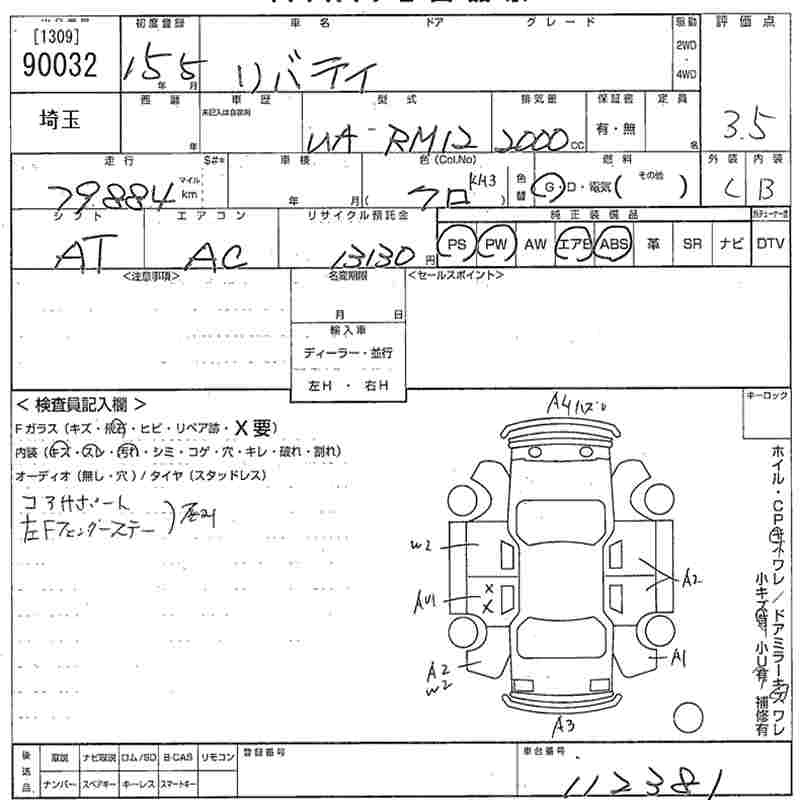 出品番号 初度登録 車名 ドア グレード 駆動 評価点
[1309]
90032 15 年 5 月 リバティ 2WD・4WD 3.5
埼玉 西暦 年 車歴 未記入は自家用 型式 排気量 保証書 定員
UA-RM12 2000 CC 有・無 名
走行 S#* 車検 色(Col.No) 燃料 外装 内装
79884 マイル km 年 月( クロ KH3 ) 色替 G・D・電気( その他 ) C B
シフト エアコン リサイクル預託金 純正装備品
AT AC 13130 円 PS PW AW エアB ABS 革 SR ナビ DTV
<注意事項> 名変期限 <セールスポイント>
月 日
輸入車
ディーラー・並行
左H・右H
キーロック
< 検査員記入欄 >
Fガラス(キズ・飛石・ヒビ・リペア跡・X要)
内装(キズ・スレ・汚れ・シミ・コゲ・穴・キレ・破れ・割れ)
オーディオ(無し・穴)/タイヤ(スタッドレス)
コアサポート
左Fフェンダーステー
A4
W2
AU1
A2
W2
A2
A1
A3
X
X
ホイル・CPキズワレ/ドアミラーキズワレ
小キズ有 小U有 補修有
後送品 取説 ナビ取説 ロム/SD B-CAS リモコン 登録番号 車台番号
ナンバー スペアキー キーレス スマートキー 112381